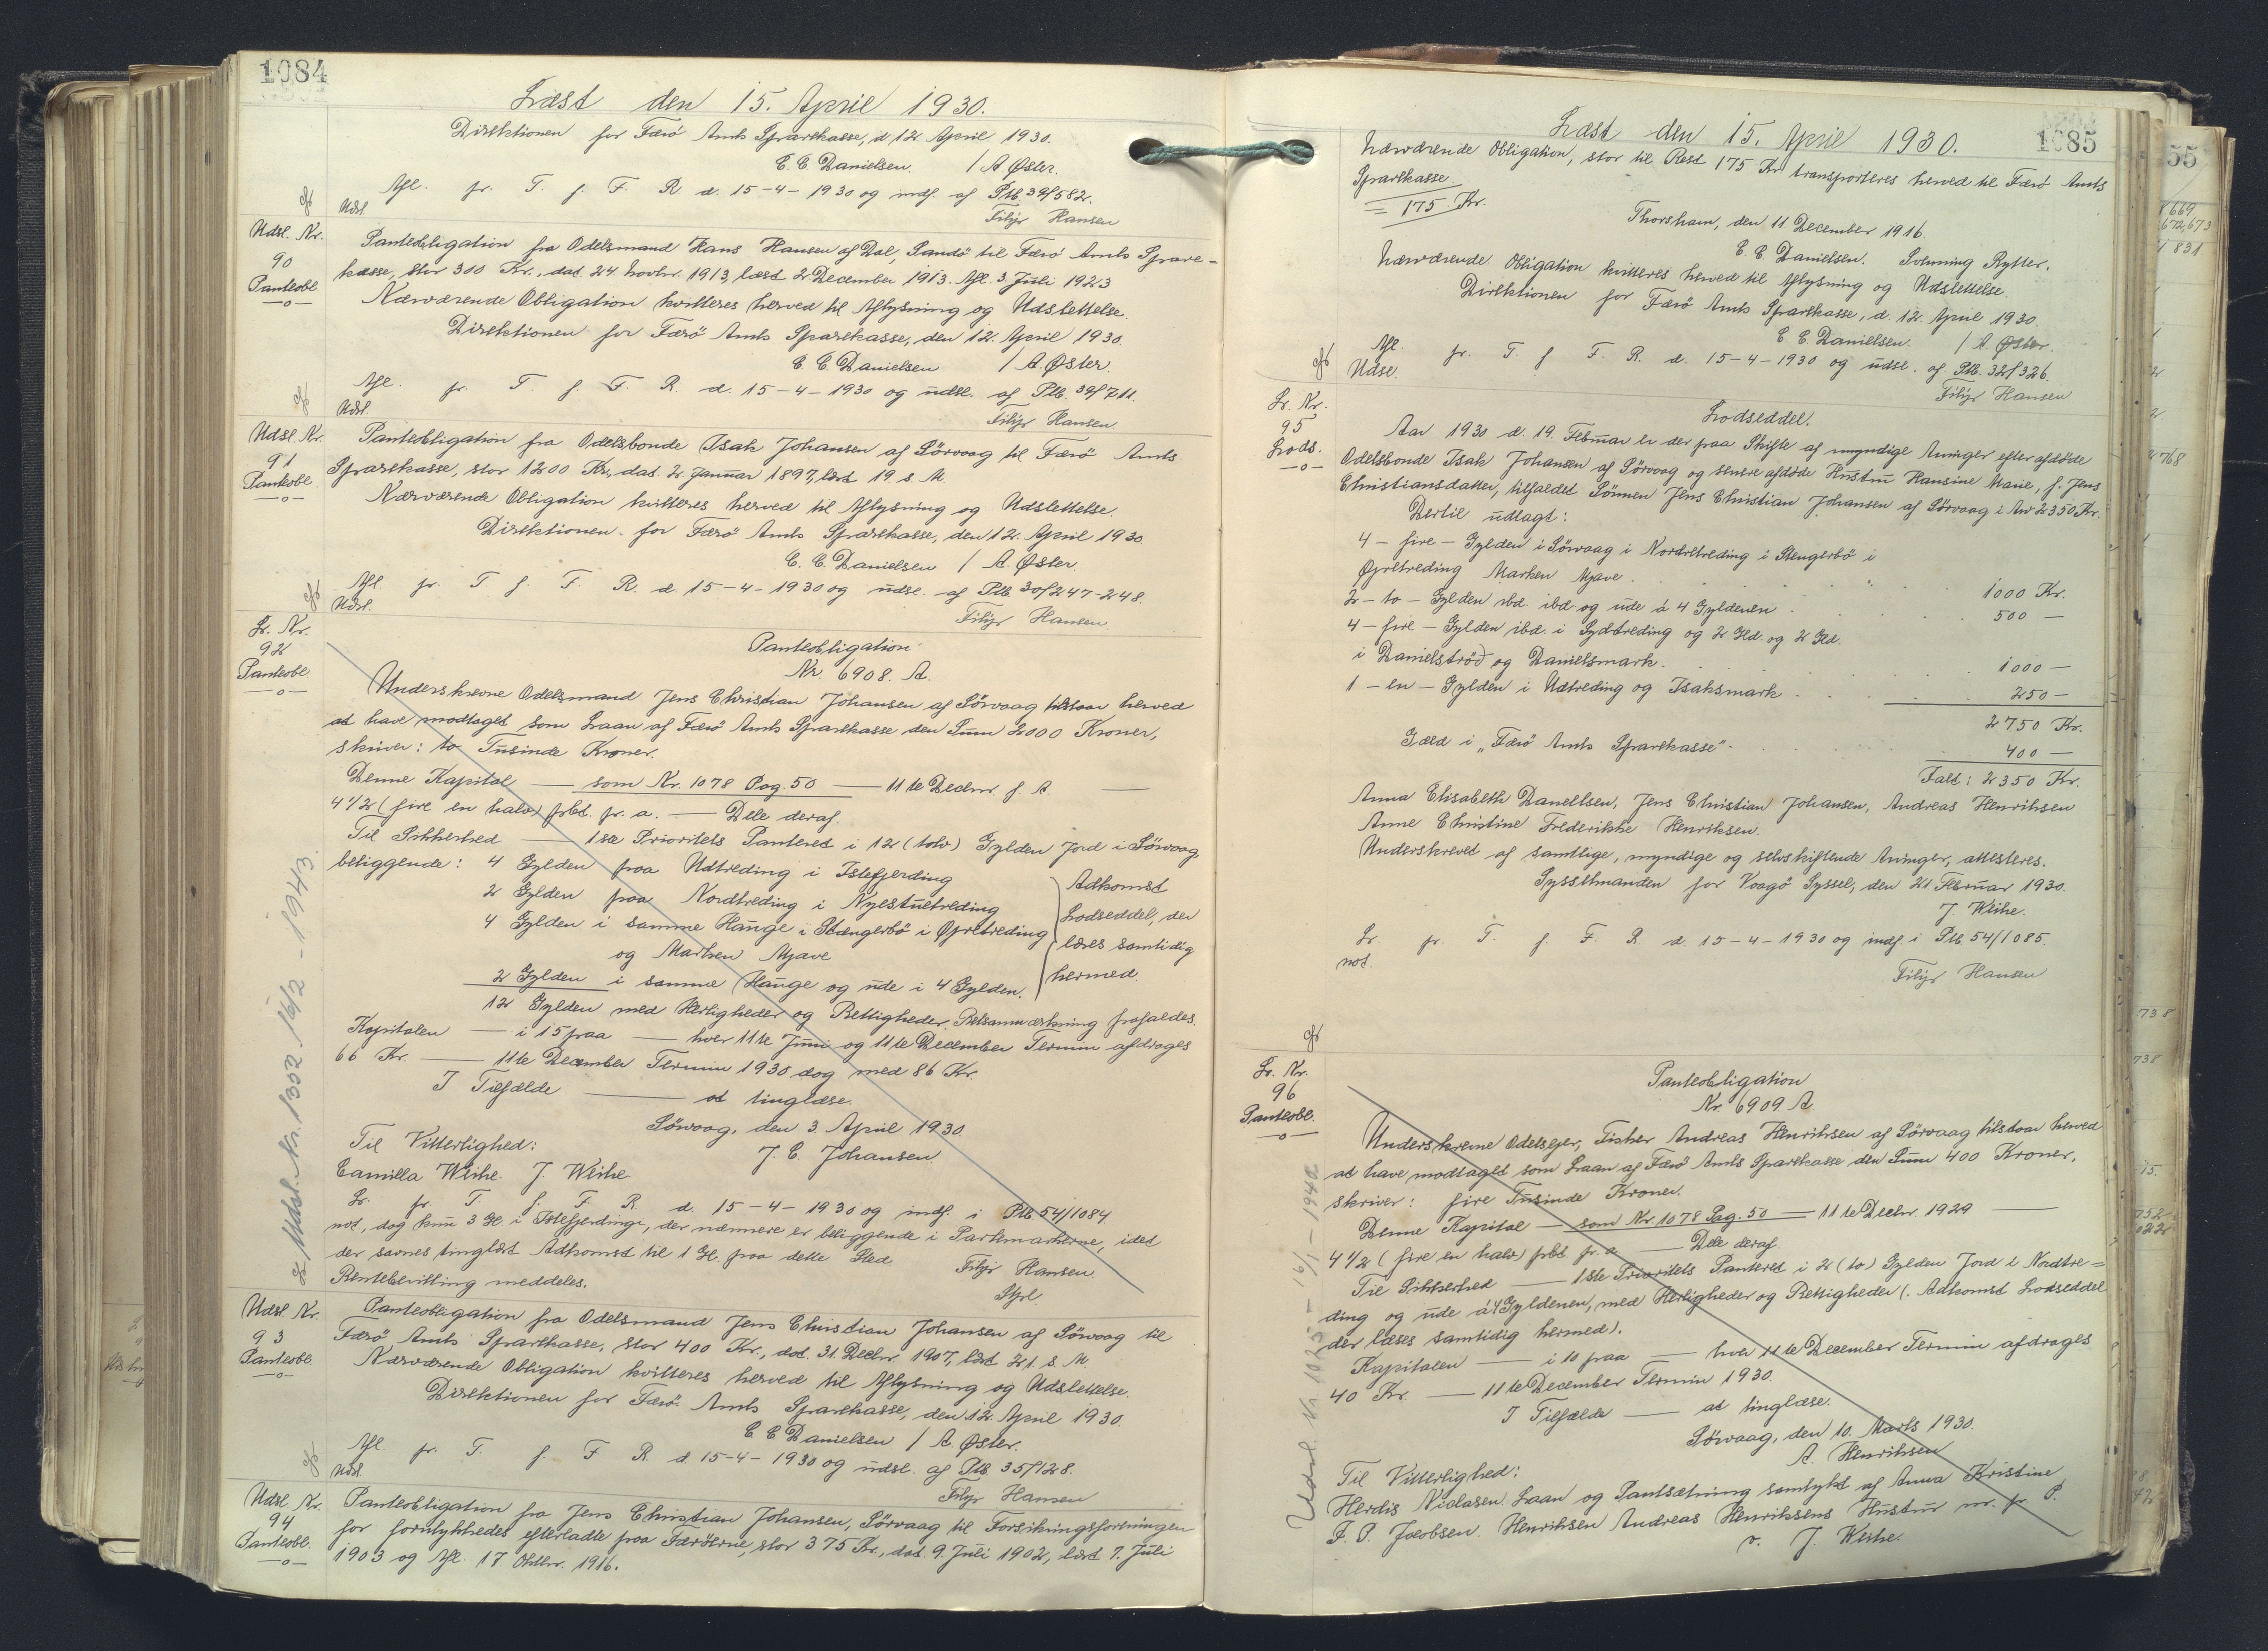 1084
Læst den 15. April 1930.
Direktionen for Færø Amts Sparekasse, d 12. April 1930.
E. C. Danielsen / A Øster.
Afl. fr. T. f. F. R. d. 15-4-1930 og indf. af Ptb. 39/582.
Udsl. Filip Hansen
Udsl. Nr. 90 Panteobl.
Panteobligation fra Odelsmand Hans Hansen af Dal, Sandö til Færö Amts Spare=
kasse, stor 300 Kr., dat. 24 Novbr. 1913, læst 2 December 1913. Afl. 3. Juli 1923
Nærværende Obligation kvitteres herved til Aflysning og Udslettelse.
Direktionen for Færö Amts Sparekasse, den 12. April 1930.
E. C. Danielsen / A. Øster.
Afl. fr. T. f. F. R. d. 15-4-1930 og udsl. af Ptb. 39/711.
Udsl. Filip Hansen
Udsl. Nr. 91 Panteobl.
Panteobligation fra Odelsbonde Isak Johansen af Sörvaag til Færö Amts
Sparekasse, stor 1200 Kr., dat. 2. Januar 1897, læst 19. s. M.
Nærværende Obligation kvitteres herved til Aflysning og Udslettelse
Direktionen for Færö Amts Sparekasse, den 12. April 1930
E. C. Danielsen / A. Øster.
Afl. fr. T. f. F. R. d. 15-4-1930 og udsl. af Ptb. 30/247-248.
Udsl. Filip Hansen
Lr. Nr. 92 Panteobl.
Panteobligation
Nr. 6908. A.
Underskrevne Odelsmand Jens Christian Johansen af Sörvaag tilstaar herved
at have modtaget som Laan af Færö Amts Sparekasse den Sum 2000 Kroner,
skriver: to Tusinde Kroner.
Denne Kapital — som Nr. 1078 Pag. 50 — 11te Decbr. f A. —
4 1/2 (fire en halv) pCt. pr. a. — Dele deraf.
Til Sikkerhed — 1ste Prioritets Panteret i 12 (tolv) Gylden Jord i Sörvaag,
beliggende: 4 Gylden paa Udtreding i Islefjerding
2 Gylden paa Nordtreding i Nylstuetreding
4 Gylden i samme Hauge i Stængerbö i Øpretreding
og Marken Mjave
2 Gylden i samme Hauge og ude i 4 Gylden.
Adkomst
Lodseddel, der
læses samtidig
hermed.
12 Gylden med Herligheder og Rettigheder.
Kapitalen — i 15 paa — hver 11te Juni og 11te December Termin afdrages
66 Kr. — 11te December Termin 1930 dog med 86 Kr.
I Tilfælde — at tinglæse.
Sörvaag, den 3. April 1930.
Til Vitterlighed: J. C. Johansen
Camilla Weihe. J. Weihe
Lr. fr. T. f. F. R. d. 15-4-1930 og indf. i Ptb. 54/1084
not., dog kun 3 Gl. i Islefjerdinge, der nærmere er beliggende i Partmarkerne, idet
der savnes tinglæst Adkomst til 1 Gl. paa dette Sted.
Rentebevilling meddeles. Filip Hansen.
Udsl. Nr. 1302 16/2 - 1943.
Udsl. Nr. 93 Panteobl.
Panteobligation fra Odelsmand Jens Christian Johansen af Sörvaag til
Færö Amts Sparekasse, stor 400 Kr., dat. 31. Decbr. 1907, læst 21. s. M.
Nærværende Obligation kvitteres herved til Aflysning og Udslettelse.
Direktionen for Færö Amts Sparekasse, den 12. April 1930.
E C Danielsen / A. Øster.
Afl. fr. T. f. F. R. d. 15-4-1930 og udsl. af Ptb. 35/128.
Udsl. Filip Hansen
Udsl. Nr. 94 Panteobl.
Panteobligation fra Jens Christian Johansen, Sörvaag til Forsikringsforeningen
for forulykkedes efterladte paa Færöerne, stor 375 Kr., dat. 9. Juli 1902, læst 7. Juli
1903 og Afl. 17. Oktbr. 1916.
1085
Læst den 15. April 1930.
Nærværende Obligation, stor til Rest 175 Kr. transporteres herved til Færö Amts
Sparekasse.
= 175 Kr.
Thorshavn, den 11 December 1916.
E C Danielsen. Svenning Rytter.
Nærværende Obligation kvitteres herved til Aflysning og Udslettelse.
Direktionen for Færö Amts Sparekasse, d. 12. April 1930.
E. C. Danielsen. / A. Øster.
Afl. fr. T. f. F. R. d. 15-4-1930 og udsl. af Ptb. 32/326.
Udsl. Filip Hansen
Lr. Nr. 95 Lods.
Lodseddel.
Aar 1930 d. 19. Februar er der paa Skifte af myndige Arvinger efter afdöde
Odelsbonde Isak Johansen af Sörvaag og senere afdöde Hustru Hansine Marie, f. Jens
Christiansdatter, tilfaldet Sönnen Jens Christian Johansen af Sörvaag i Arv 2350 Kr.
Dertil udlagt:
4 - fire - Gylden i Sörvaag i Nordretreding i Stengerbö i
Øpretreding Marken Mjave. 1000 Kr.
2 - to - Gylden ibd. ibd og ude á 4 Gyldenen 500 —
4 - fire - Gylden ibd. i Sydtreding og 2 Gld. og 2 Gld.
i Danielströd og Danielsmark. 1000 —
1 - en - Gylden i Udtreding og Isaksmark 250 —
2750 Kr.
Gæld i "Færö Amts Sparekasse". 400 —
Ialt: 2350 Kr.
Anna Elisabeth Danielsen, Jens Christian Johansen, Andreas Henriksen
Anne Christine Frederikke Henriksen.
Underskrevet af samtlige, myndige og selvskiftende Arvinger, attesteres.
Sysselmanden for Vaagö Syssel, den 21. Februar 1930.
J. Weihe.
Lr. fr. T. f. F. R. d. 15-4-1930 og indf. i Ptb. 54/1085.
not. Filip Hansen
Lr. Nr. 96 Panteobl.
Panteobligation
Nr. 6909 A
Underskrevne Odelsejer, Fisker Andreas Henriksen af Sörvaag tilstaar herved
at have modtaget som Laan af Færö Amts Sparekasse den Sum 400 Kroner,
skriver: fire Tusinde Kroner.
Denne Kapital — som Nr. 1078 Pag. 50 — 11te Decbr. 1929 —
4 1/2 (fire en halv) pCt. pr. a. — Dele deraf.
Til Sikkerhed — 1ste Prioritets Panteret i 2 (to) Gylden Jord i Nordtre=
ding og ude á 4 Gyldenen, med Herligheder og Rettigheder (. Adkomst Lodseddel
der læses samtidig hermed).
Kapitalen — i 10 paa — hver 11te December Termin afdrages
40 Kr. — 11te December Termin 1930.
I Tilfælde — at tinglæse.
Sörvaag, den 10. Marts 1930.
A. Henriksen
Til Vitterlighed:
Herdis Niclasen. Laan og Pantsætning samtykt af Anna Kristine
J. P. Jacobsen. Henriksen Andreas Henriksens Hustru m. fr. P.
v. J. Weihe.
Udsl. Nr. 1025